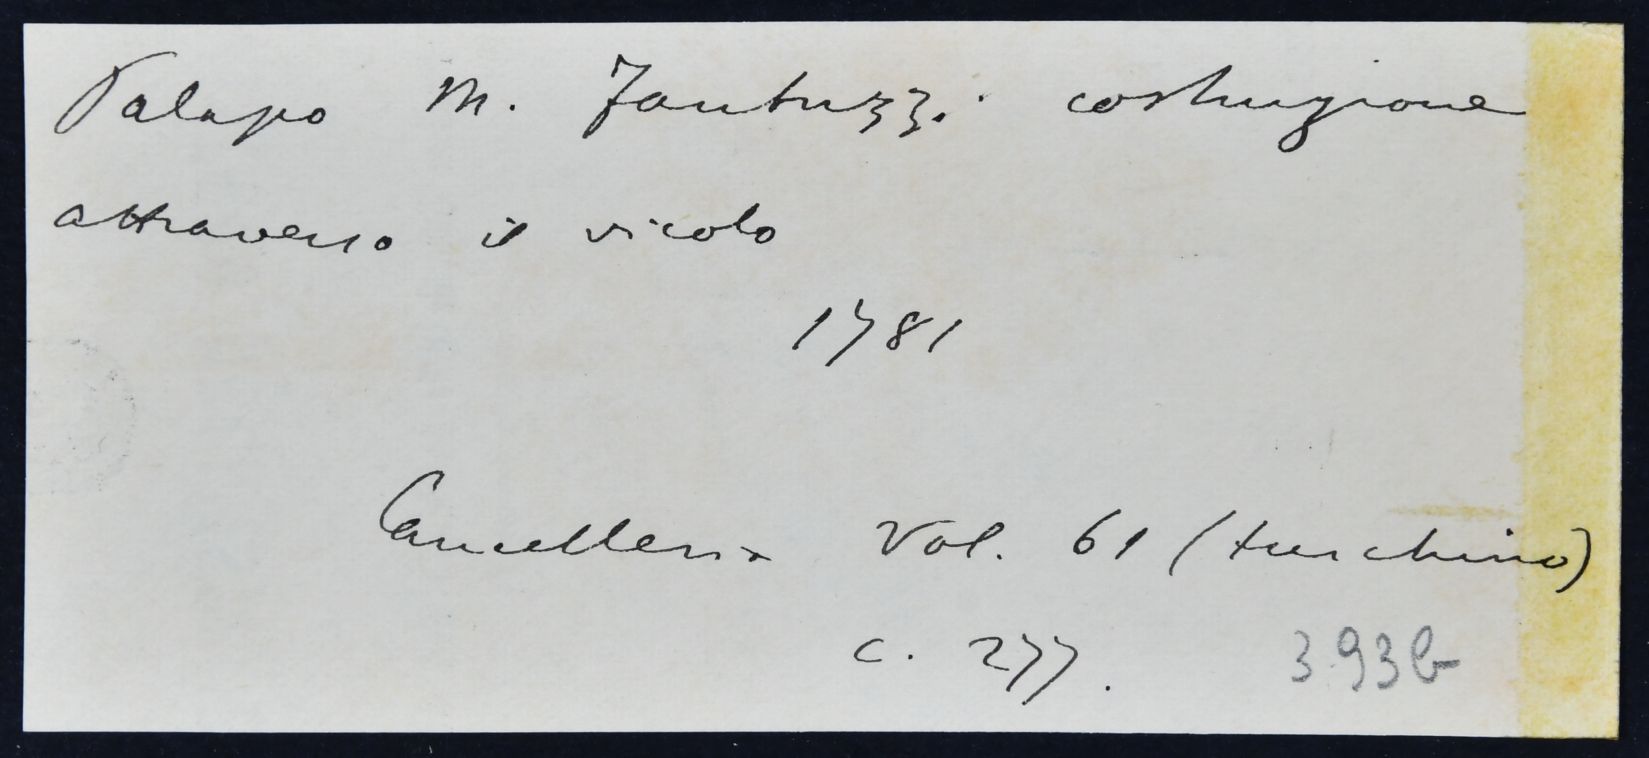 Palazzo M. Fantuzzi costruzione
attraverso il vicolo
1781
Cancelleria Vol. 61 (turchino)
c. 277.
393b